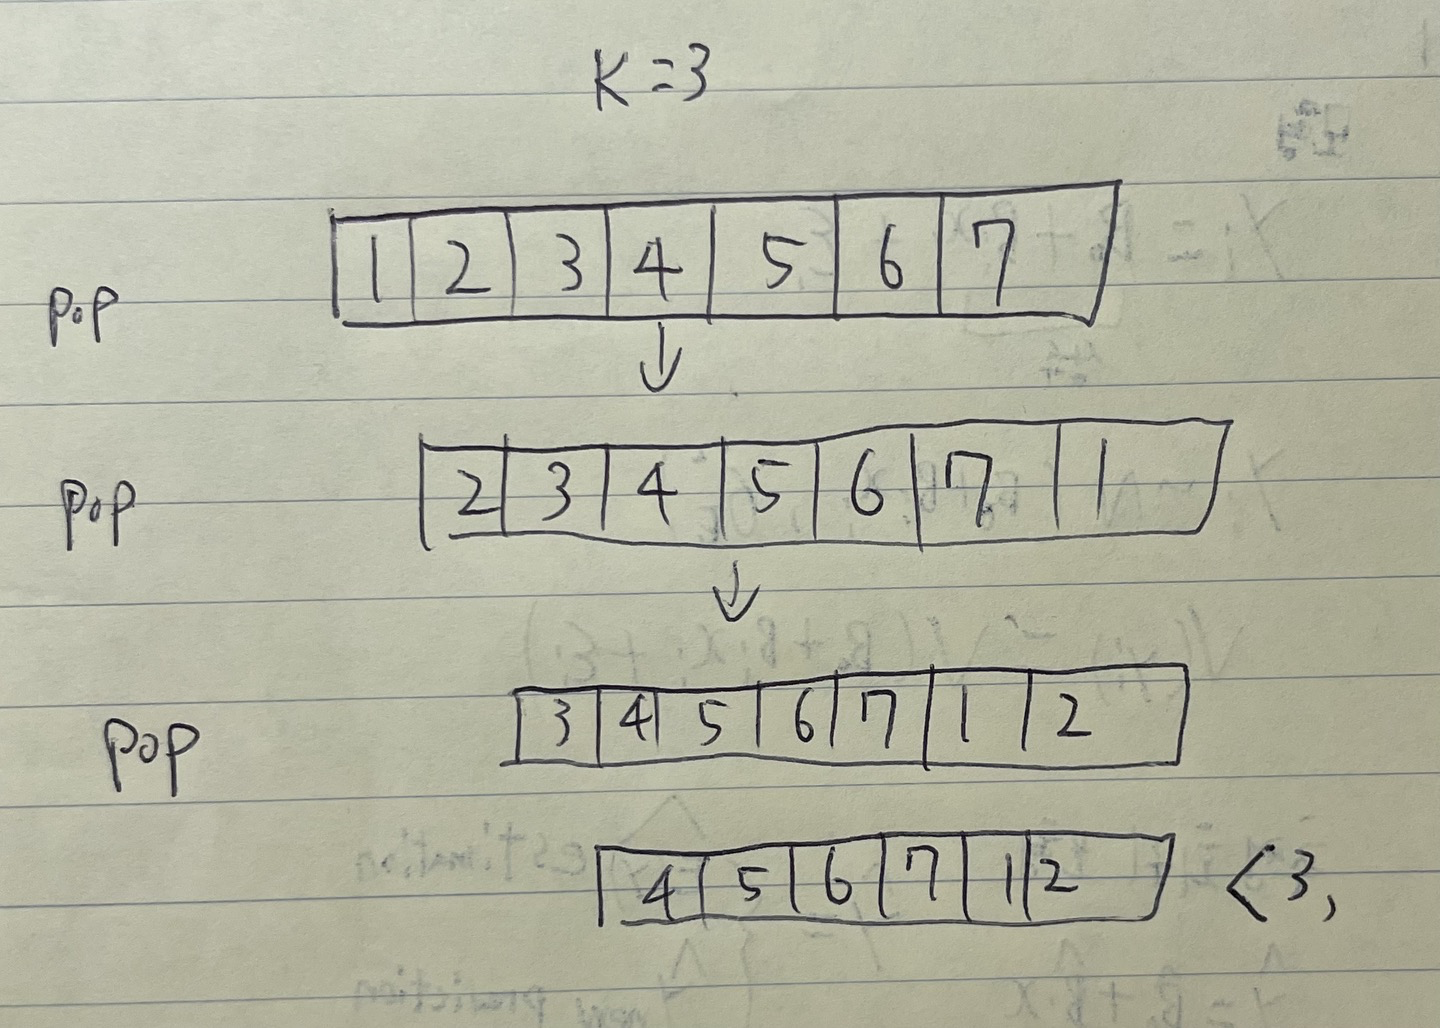 K=3
pop 1 2 3 4 5 6 7
↓
pop 2 3 4 5 6 7 1
↓
pop 3 4 5 6 7 1 2
4 5 6 7 1 2 <3,